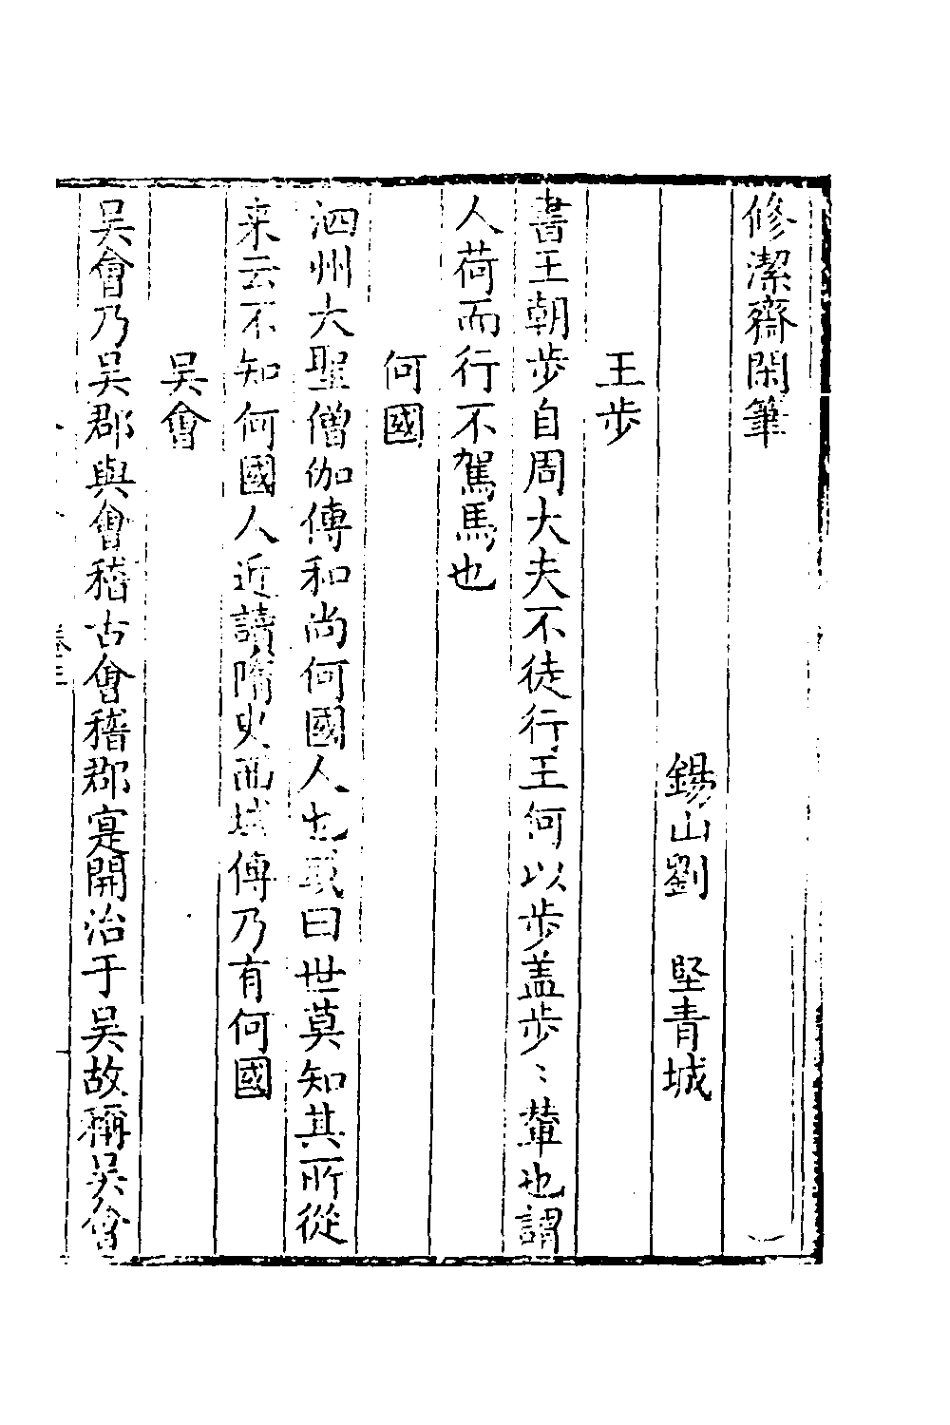 修潔齋閑筆
錫山劉　堅青城
王步
書王朝步自周大夫不徒行王何以步盖步〻輦也謂
人荷而行不駕馬也
何國
泗州大聖僧伽傳和尚何國人也或曰世莫知其所從
来云不知何國人近讀隋史西域傳乃有何國
吴會
吴會乃吴郡與會稽古會稽郡寔開治于吴故稱吴會